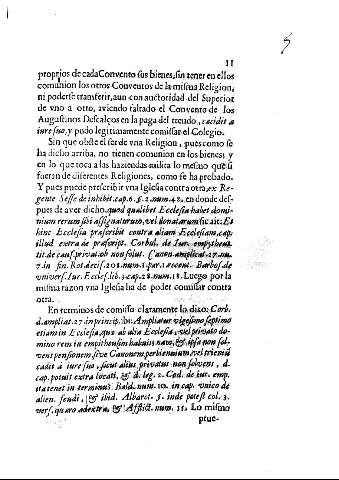 11
proprios de cada Convento sus bienes, sin tener en ellos
comunion los otros Conventos de la misma Religion,
ni poderse transferir, aun con auctoridad del Superior
de vno a otro, aviendo faltado el Convento de los
Augustinos Descalços en la paga del treudo, cecidit a
iure suo, y pudo legitimamente comissar el Colegio.
Sin que obste el ser de vna Religion, pues como se
ha dicho arriba, no tienen comunion en los bienes, y
en lo que toca a las haziendas milita lo mesmo que si
fueran de diferentes Religiones, como se ha probado.
Y pues puede prescribir vna Iglesia contra otra ex Re-
gente Sesse de inhibit. cap. 6. §. 2. num. 42. en donde des-
pues de aver dicho, quod quælibet Ecclesia habet domi-
nium rerum sibi assignatarum, vel donatarum sit: Et
hinc Ecclesia præscribit contra aliam Ecclesiam, cap.
illud extra de præscript. Corbul. de Iur. emphiteu.
tit. de caus. privat. ob non solut. Canon. ampliat. 27. nu.
7. in fin. Rot. decis. 208. num. 1. par. 1. recent. Barbos. de
univers. Iur. Eccles. lib. 3. cap. 28. num. 18. Luego por la
misma razon vna Iglesia ha de poder comissar contra
otra.
En terminos de comisso claramente lo dixo: Corb.
d. ampliat. 27. in princip. ibi: Ampliatur vigesimo septimo
etiam in Ecclesia, quæ ab alia Ecclesia, vel privato do-
mino rem in empitheusim habuit: nam, & ipsa non sol-
vent pensionem, sive Canonem per biennium, vel trienniũ
cadit à iure suo, sicut alius privatus non solvens, d.
cap. potuit extra locati, & d. leg. 2. Cod. de iur. emp.
ita tenet in terminis Bald. num. 10. in cap. vnico de
alien. feudi, & ibid. Albarot. §. inde potest col. 3.
vers. quæro ad extra, & Afflict. num. 35. Lo mismo
pue-